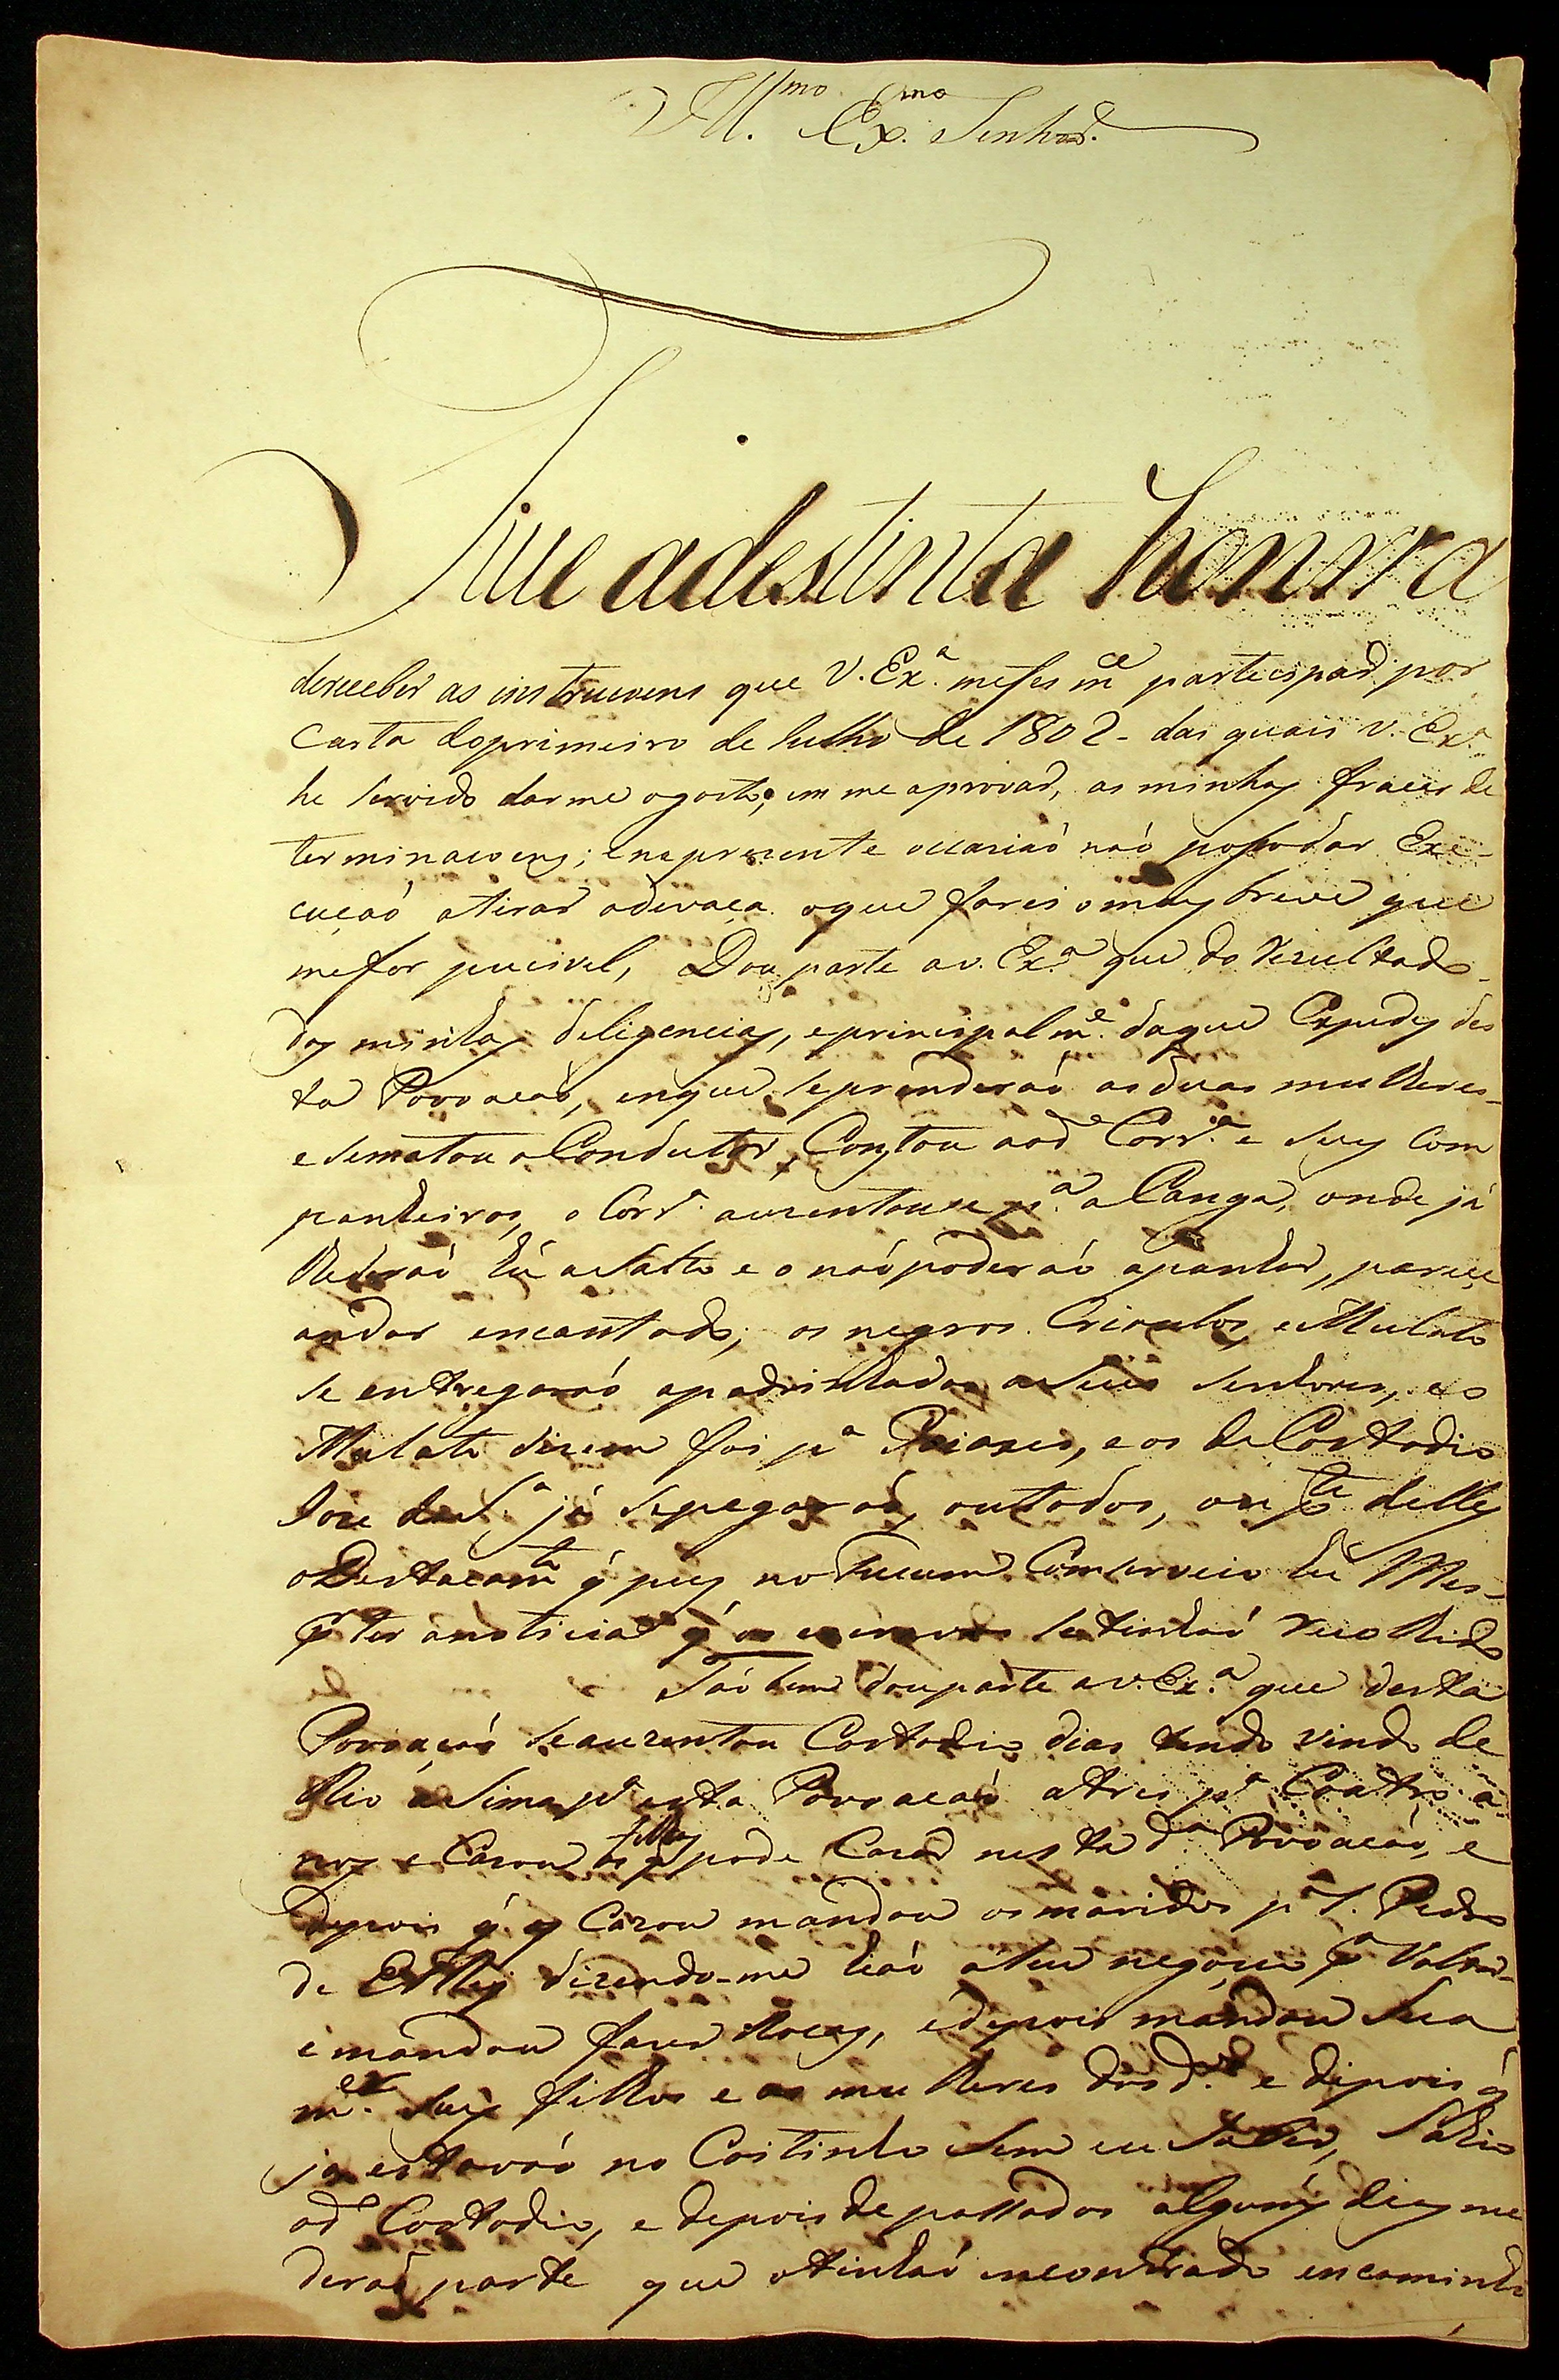 Ill.mo Ex.mo Senhor.
Tive adestinta honrra
dereceber as instrucoens que V. Ex.a mefes m.ce participar por
Carta doprimeiro de Julho de 1802 - das quais V. Ex.a
he servido darme ogosto, em me aprovar, as minhas fracas de
terminacoens; enaprezente ocaziaó naó posso dar Exe-
cuçaó atirar adevaça oque farei omais breve que
mefor pucivel, Dou parte av. Ex.a que do Rezultado
das minhas deligencias, eprincipalm.e daque Expedy des
ta Povoacaó, enque seprenderaó as duas mulheres
e sematou oCondutor, Constou aod.e Corr.a e seus Com
panheiros, o Corr.a auzentouse p.a aCanga, onde já
lhederaó hú asalto e o naópoderaó apanhar, parece
andar encantado; os negros Crioulos, e Mulato
se entregaraó apadrinhados aseus senhores, eo
Mulato dizem foi p.a Goiazes, e os de Costodio
Joze da S.a já sepegaraó, outodos, ou p.te delles
oDestacam.to q̃ pus no Comserveio hú Mes
p.r ter anoticia q̃ os escravos setinhaó recolhido
Taóbem douparte av. Ex.a que desta
Povoaçaó seauzentou Costodio dias tendo vindo de
Rio asima p.a esta Povoacaó atres p.a Coatro a
nos e Cazou as filhas q̃ pode Cazar nesta d.a Povoacaó, e
depois q̃ as Cazou mandou osmaridos p.a S. Pedro
de ElRey dizendo-me hiaó aseu negocio p.a Voltar
e mandou fazer Rocas, edepois mandou sua
m.er seus filhos e as mulheres dos d.os e depois q̃
ja estavaó no Costinho sem eu saber, sahio
od.o Costodio, e depois de passados alguns dias me
deraó parte que otinhaó encontrado encaminho